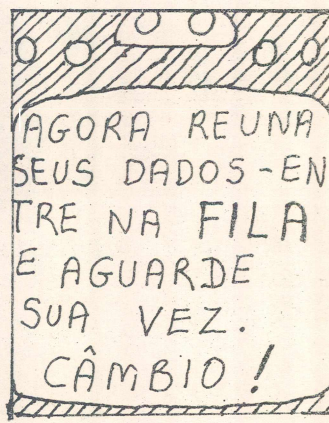 AGORA REUNA
SEUS DADOS-EN
TRE NA FILA
E AGUARDE
SUA VEZ.
CÂMBIO!